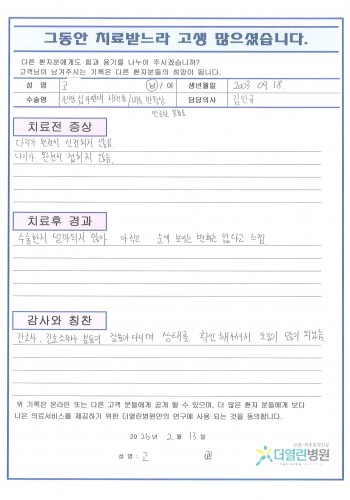 그동안 치료받느라 고생 많으셨습니다.
다른 환자분에게도 힘과 용기를 나누어 주시겠습니까?
고객님이 남겨주시는 기록은 다른 환자분들의 희망이 됩니다.
성 명 고 남 / 여 생년월일 2003 09 18.
수술명 전방십자인대 재건술 / 내측 반월상 담당의사 김민규
연골판 봉합술
치료전 증상
다리가 완전히 신전되지 않음
다리가 완전히 접히지 않음.
치료후 경과
수술한지 얼마되지 않아 아직은 눈에 보이는 변화는 없다고 느낌.
감사와 칭찬
간호사, 간호조무사 분들이 잘 돌아다니며 상태를 확인해주셔서 도움이 많이 되었음.
위 기록은 온라인 또는 다른 고객 분들에게 공개 될 수 있으며, 더 많은 환자 분들에게 보다
나은 의료서비스를 제공하기 위한 더열린병원만의 연구에 사용 되는 것을 동의합니다.
2026년 2월 13일
성 명 : 고
더열린병원